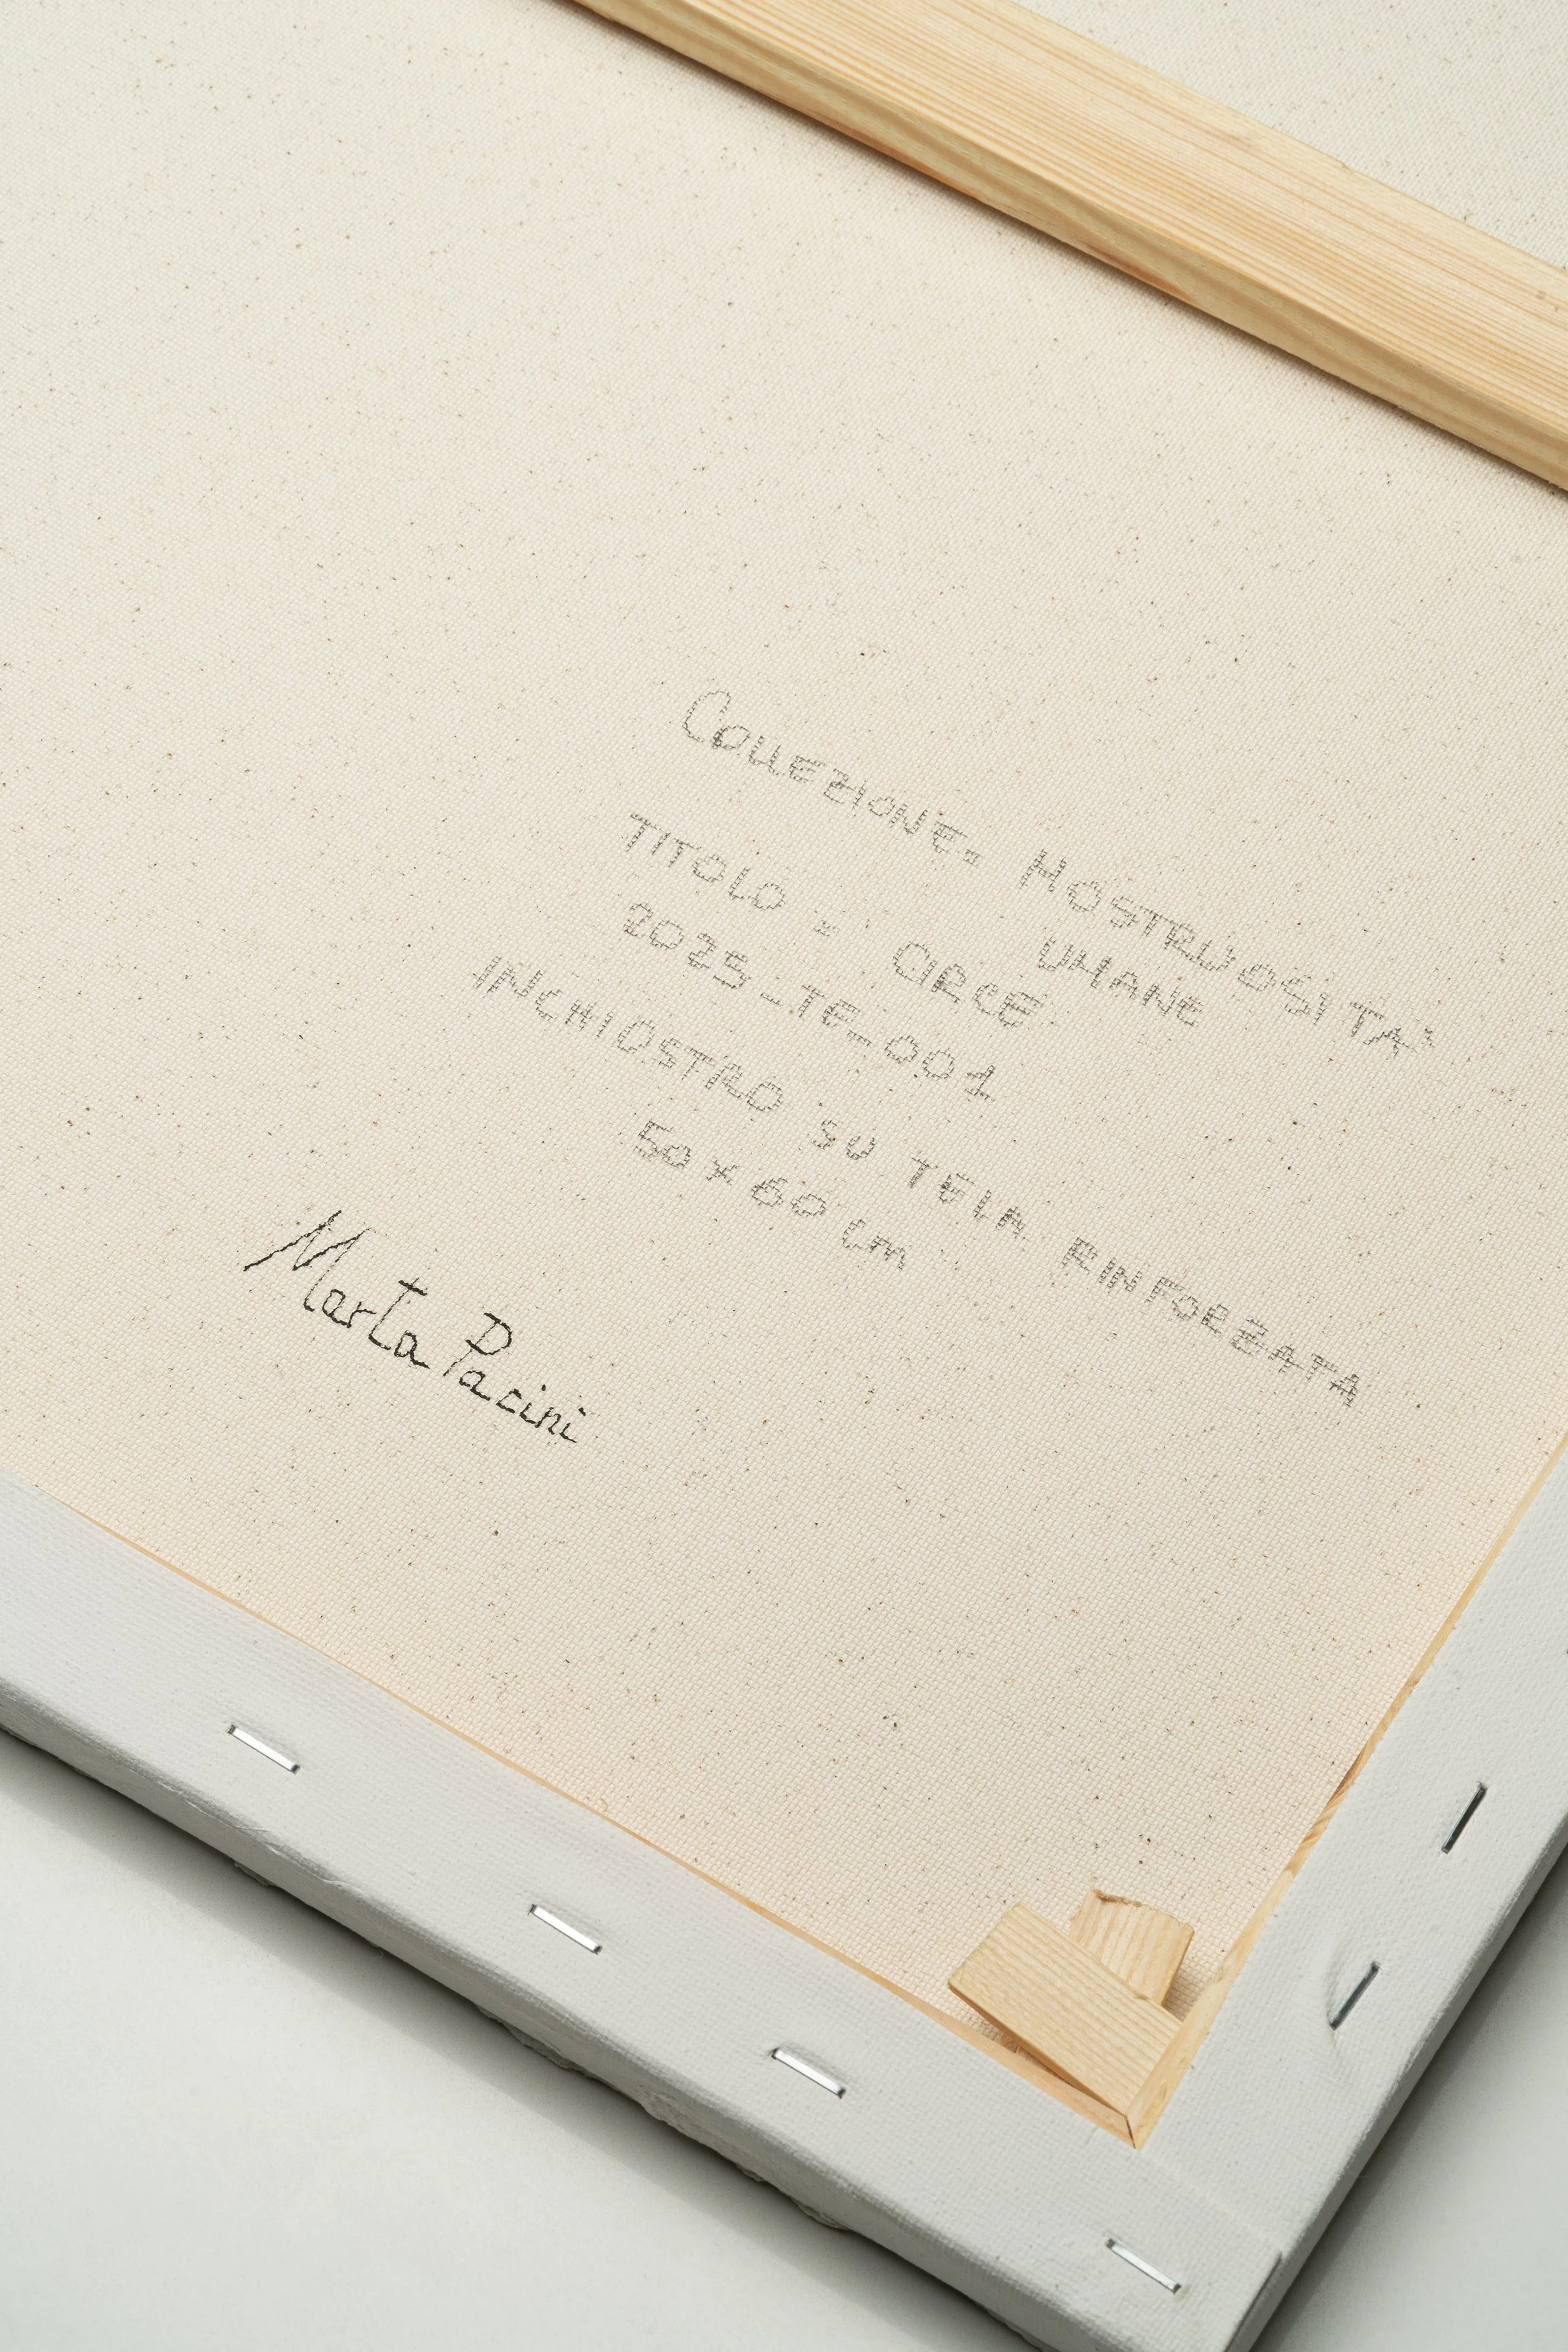 COLLEZIONE: MOSTRUOSITA'
UMANE
TITOLO: CIRCE
2025-TE-001
INCHIOSTRO SU TELA RINFORZATA
50x60 cm
Marta Pacini